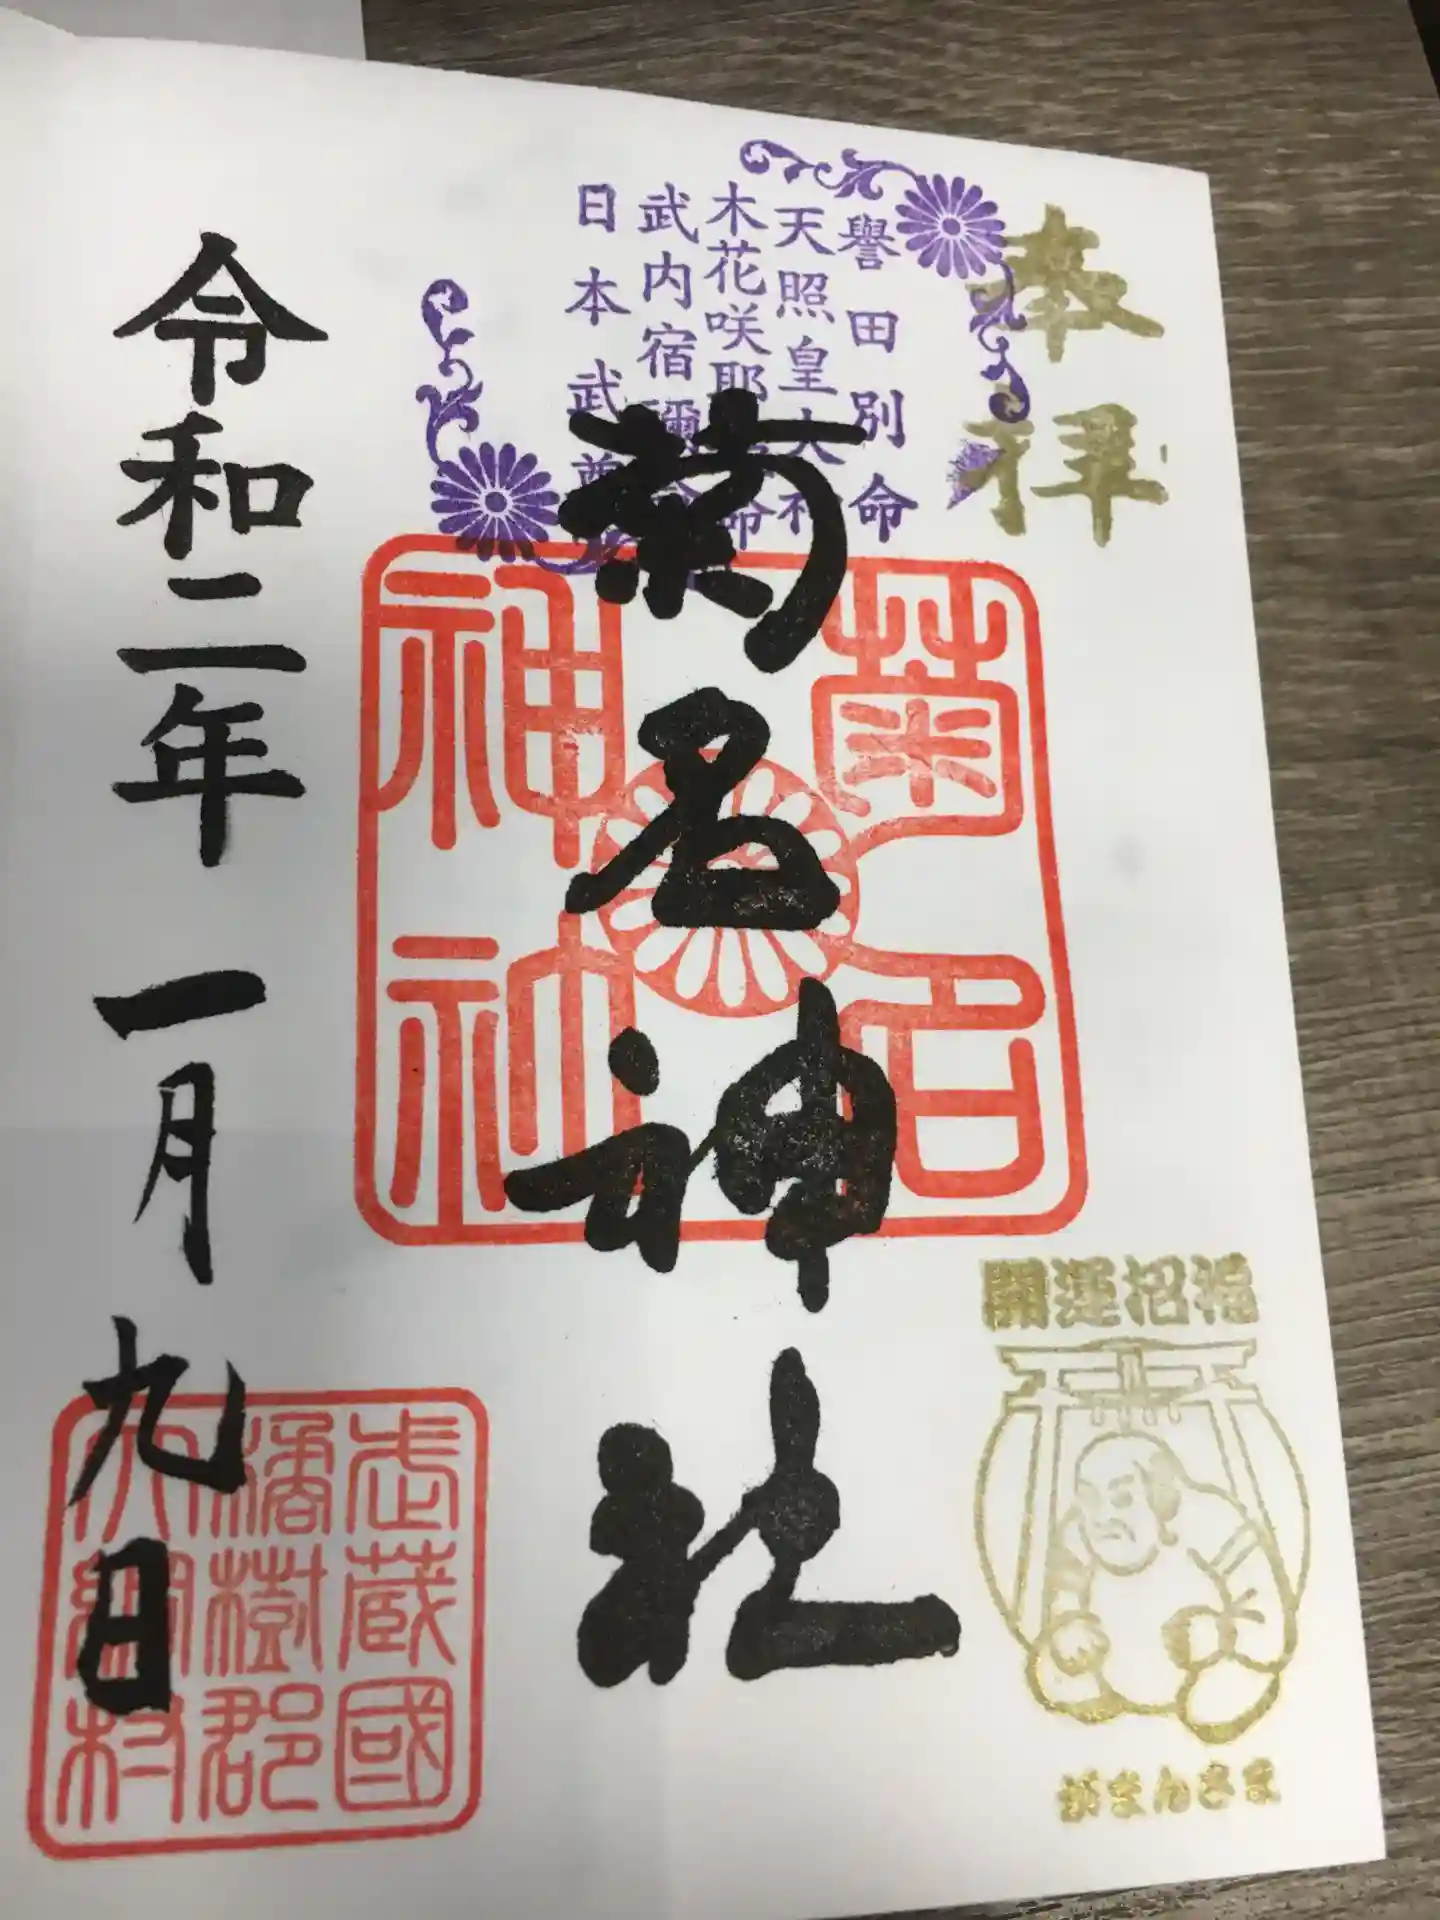 奉拝
譽田別命
天照皇大神
木花咲耶
武内宿禰命
日本武尊
菊名神社
菊名
神社
令和二年 一月九日
武蔵國
橘樹郡
大綱村
開運招福
がまんさま